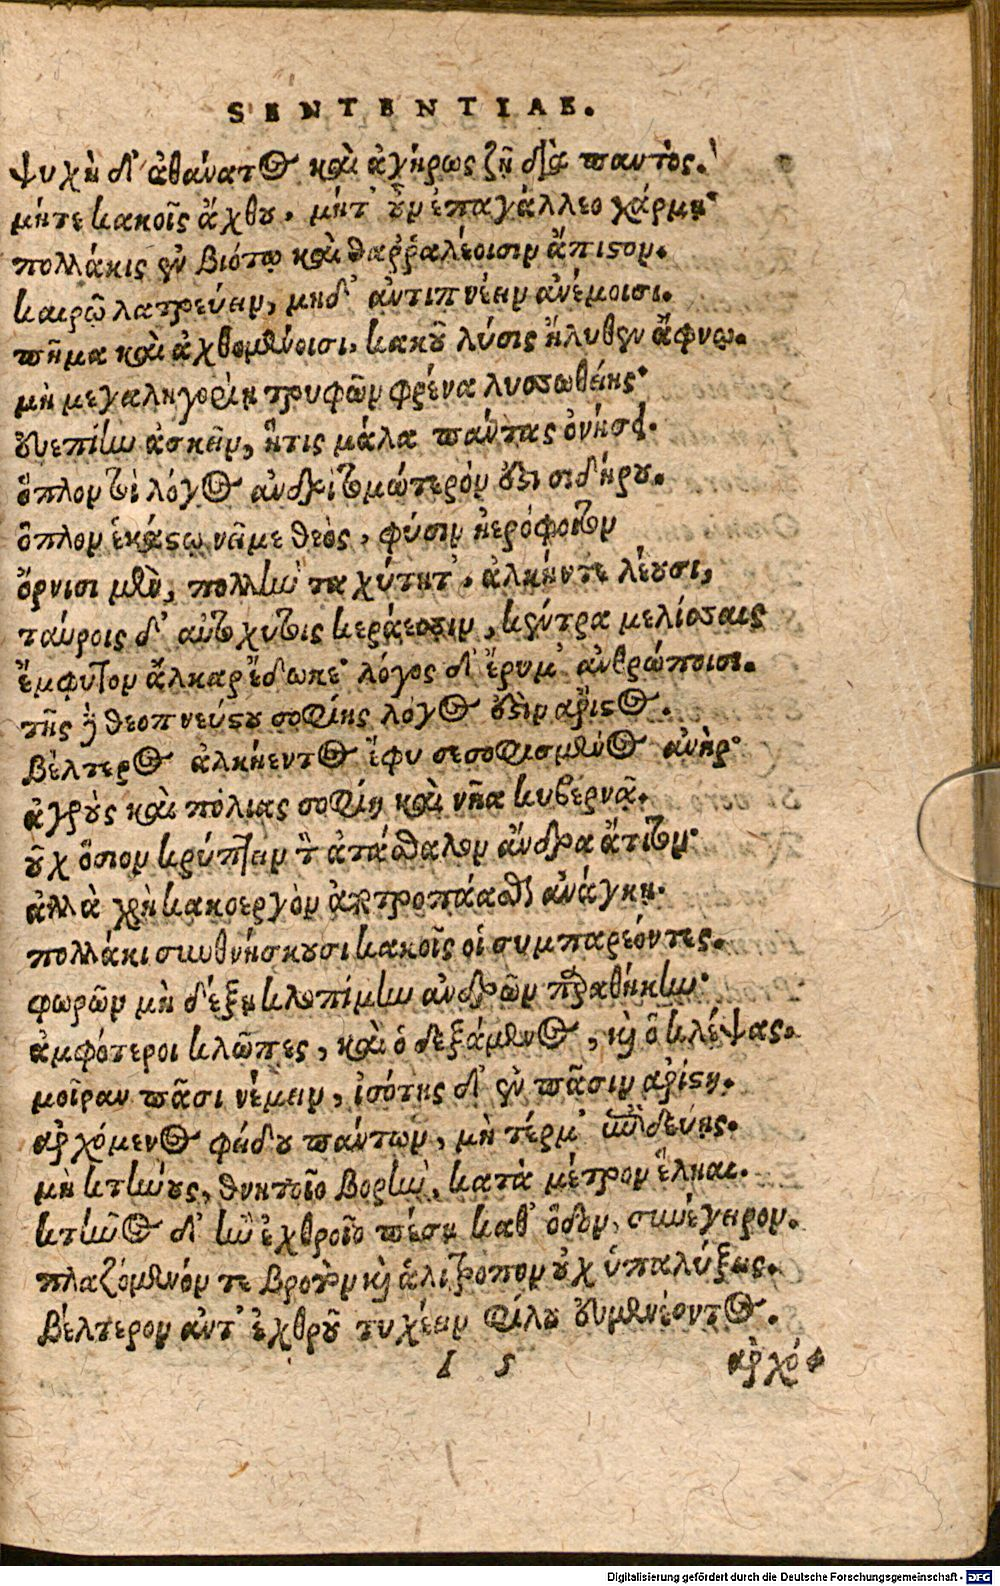 SENTENTIAE.
ψυχὴ δ' ἀθάνατος καὶ ἀγήρως ζῇ διὰ παντός.
μήτε κακοῖς ἄχθου, μήτ' οὖν ἐπαγάλλεο χάρμῃ·
πολλάκις ἐν βιότῳ καὶ θαῤῥαλέοισιν ἄπιστον.
καιρῷ λατρεύειν, μηδ' ἀντιπνέειν ἀνέμοισι.
πῆμα καὶ ἀχθομένοισι, κακοῦ λύσις ἤλυθεν ἄφνω.
μὴ μεγαληγορίῃ τρυφῶν φρένα λυσσωθείης·
εὐεπίην ἀσκεῖν, ἥτις μάλα πάντας ὀνήσει.
ὅπλον τοὶ λόγος ἀνδρὶ τομώτερόν ἐστι σιδήρου.
ὅπλον ἑκάστῳ νεῖμε θεὸς, φύσιν ἠερόφοιτον
ὄρνισι μὲν, πολλὴν ταχύτητ', ἀλκήντε λέουσι,
ταύροις δ' αὐτοχύτοις κεράεσσιν, κέντρα μελίσσαις
ἔμφυτον ἄλκαρ ἔδωκε· λόγος δ' ἔρυμ' ἀνθρώποισι.
τῆς δὲ θεοπνεύστου σοφίης λόγος ἐστὶν ἄριστος.
βέλτερος ἀλκήεντος ἔφυ σεσοφισμένος ἀνήρ·
ἀγροὺς καὶ πόλιας σοφίη καὶ νῆα κυβερνᾷ.
οὐχ ὅσιον κρύπτειν τὸν ἀτάσθαλον ἄνδρα ἄτιτον·
ἀλλὰ χρὴ κακοεργὸν ἀποτροπάασθαι ἀνάγκῃ.
πολλάκι συνθνήσκουσι κακοῖς οἱ συμπαρεόντες.
φωρῶν μὴ δέξῃ κλοπίμην ἀνδρῶν παραθήκην·
ἀμφότεροι κλῶπες, καὶ ὁ δεξάμενος, καὶ ὁ κλέψας.
μοῖραν πᾶσι νέμειν, ἰσότης δ' ἐν πᾶσιν ἀρίστη.
ἀρχόμενος φείδου πάντων, μὴ τέρμ' ἐπιδεύῃς.
μὴ κτήνους, θνητοῖο βορὴν, κατὰ μέτρον ἕληαι.
κτῆνος δ' ἢν ἐχθροῖο πέσῃ καθ' ὅδον, συνέγειρον.
πλαζόμενόν τε βροτὸν καὶ ἁλίτροπον οὐχ ὑπαλύξεις.
βέλτερον ἀντ' ἐχθροῦ τυχέειν φίλου εὐμενέοντος.
I 5 ἀρχό